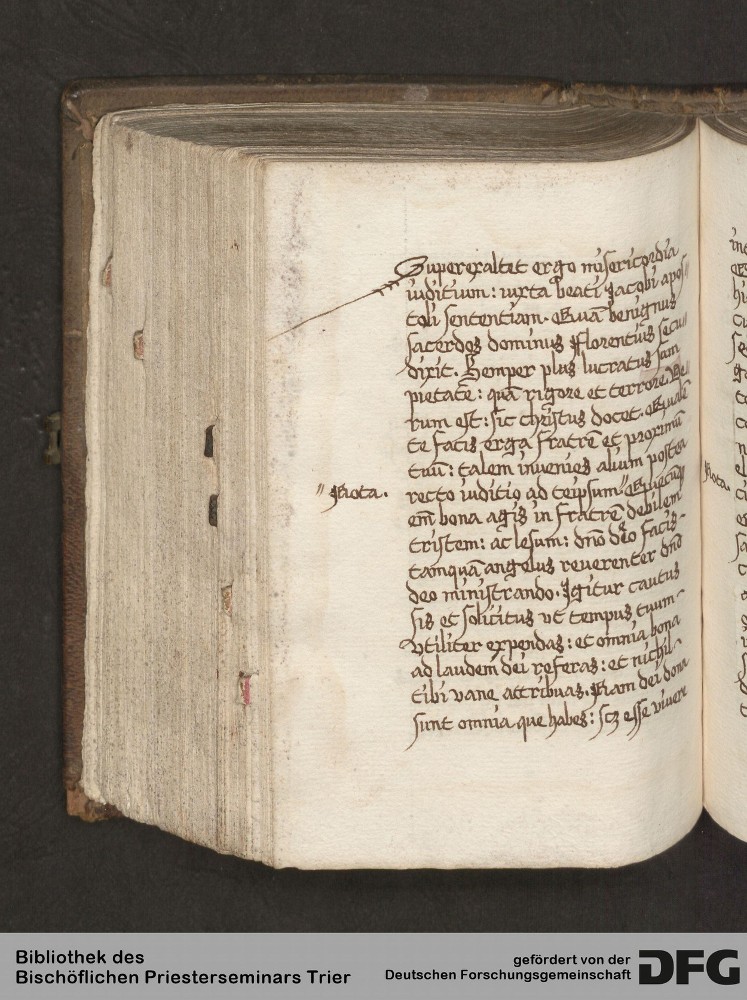 Superexaltet ergo misericordia
iuditium: iuxta beati Jacobi apos⸗
toli sententiam. Quā benignus
sacerdos dominus Florentius secu⸗
dixit. Semper plus lucratus sum
pietate: quā rigore et terrore. Ve⸗
rum est: sic christus docet. Qualē
te facis erga fratrē et proximū
tuū: talem inuenies alium postea
"Nota. recto iuditio ad teipsum. Quecū⸗
em̄ bona agis in fratrē debilem
tristem: ac lesum: dn̄o deo facis
tamquā angelus reuerenter dn̄o
deo ministrando. Igitur cautus
sis et solicitus vt tempus tuum
vtiliter expendas: et omnia bona
ad laudem dei referas: et nichil
tibi vane attribuas. Nam dei dona
sunt omnia que habes: scꝫ esse viuere
Nota.
Bibliothek des
Bischöflichen Priesterseminars Trier
gefördert von der
Deutschen Forschungsgemeinschaft DFG